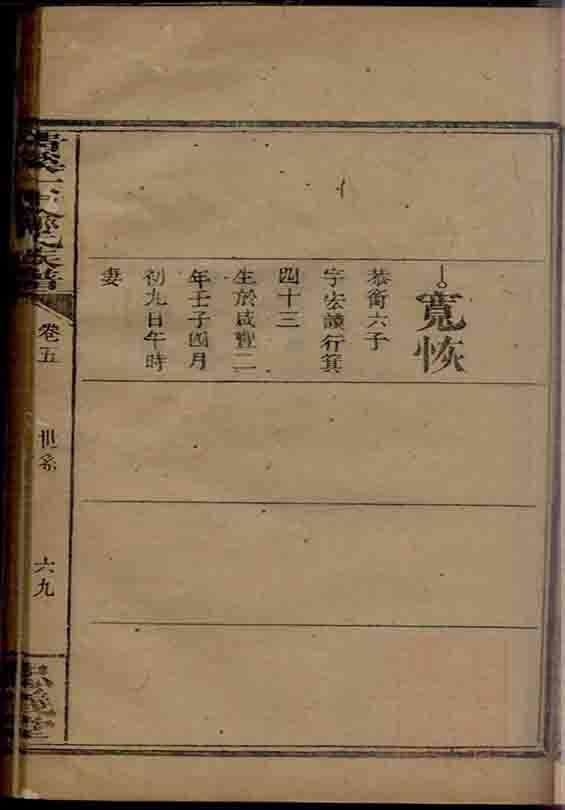 寬恢
恭衡六子
字宏讀行箕
四十三
生於咸豐二
年壬子四月
初九日午時
妻
氏族譜
卷五
世系
六九